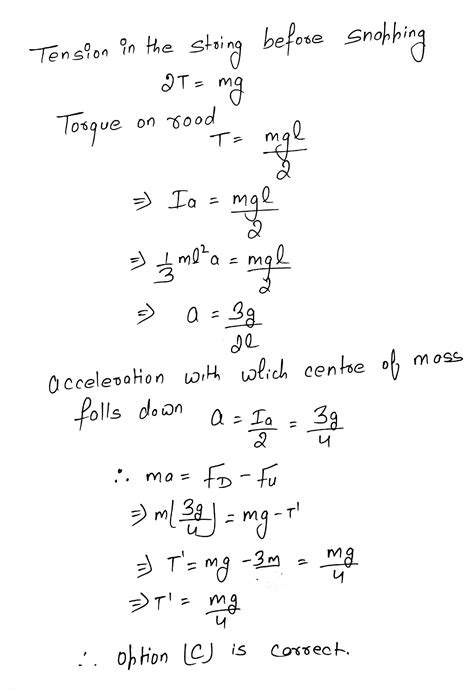 Tension in the string before snopping
2T = mg
Torque on rood
T = mgl/2
⇒ Ia = mgl/2
⇒ 1/3 ml²a = mgl/2
⇒ a = 3g/2l
acceleration with which centre of mass
falls down a = Ia/2 = 3g/4
∴ ma = FD - Fu
⇒ m(3g/4) = mg - T'
⇒ T' = mg - 3m = mg/4
⇒ T' = mg/4
∴ option (C) is correct.